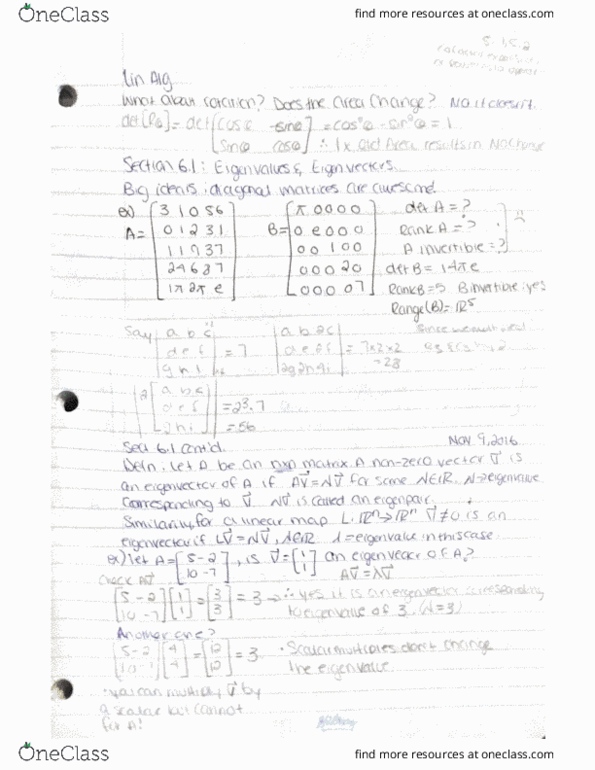 OneClass
find more resources at oneclass.com
5.1,5.2
Lin Alg
What about rotation? Does the Area Change? No it doesn't.
det[Rθ] = det [cosθ -sinθ] = cos²θ - sin²θ = 1
[sinθ cosθ] ∴ 1x old Area results in No Change
Section 6.1: Eigenvalues & Eigenvectors.
Big idea is: diagonal matrices are awesome!
ex) [3 1 0 5 6] [π 0 0 0 0] det A = ?
A= [0 1 2 3 1] B= [0 e 0 0 0] Rank A = ?
[1 1 7 3 7] [0 0 1 0 0] A invertible = ?
[2 4 6 8 7] [0 0 0 2 0] det B = 14πe
[1 π 2 π e] [0 0 0 0 7] Rank B = 5 B invertible: yes
Range(B) = ℝ⁵
Say | a b c | | a b 2c |
| d e f | = 7 = 7x2x2
| g h i | | 2g 2h gi | = 28
|2 [a b c]
[d e f] | = 2³.7
[g h i] = 56
Sect 6.1 cont'd. Nov 9, 2016
Defn: Let A be an nxn matrix. A non-zero vector v⃗ is
an eigenvector of A if Av⃗ = λv⃗ for some λ∈ℝ. λ→eigenvalue
corresponding to v⃗. λv⃗ is called an eigenpair.
Similarly, for a linear map L: ℝⁿ→ℝⁿ v⃗≠0 is an
eigenvector if Lv⃗ = λv⃗, λ∈ℝ λ = eigenvalue in this case
ex) let A = [5 -2] , is v⃗ = [1] an eigenvector of A?
[10 -7] [1]
Check Av⃗ Av⃗ = λv⃗
[5 -2] [1] = [3] = 3 → ∴ yes it is an eigenvector corresponding
[10 -7] [1] [3] to eigenvalue of 3. (λ = 3)
Another one?
[5 -2] [4] = [12] = 3 · Scalar multiples don't change
[4] [12] the eigenvalue.
· you can multiply v⃗ by
a scalar but cannot
for A!
OneClass
find more resources at oneclass.com